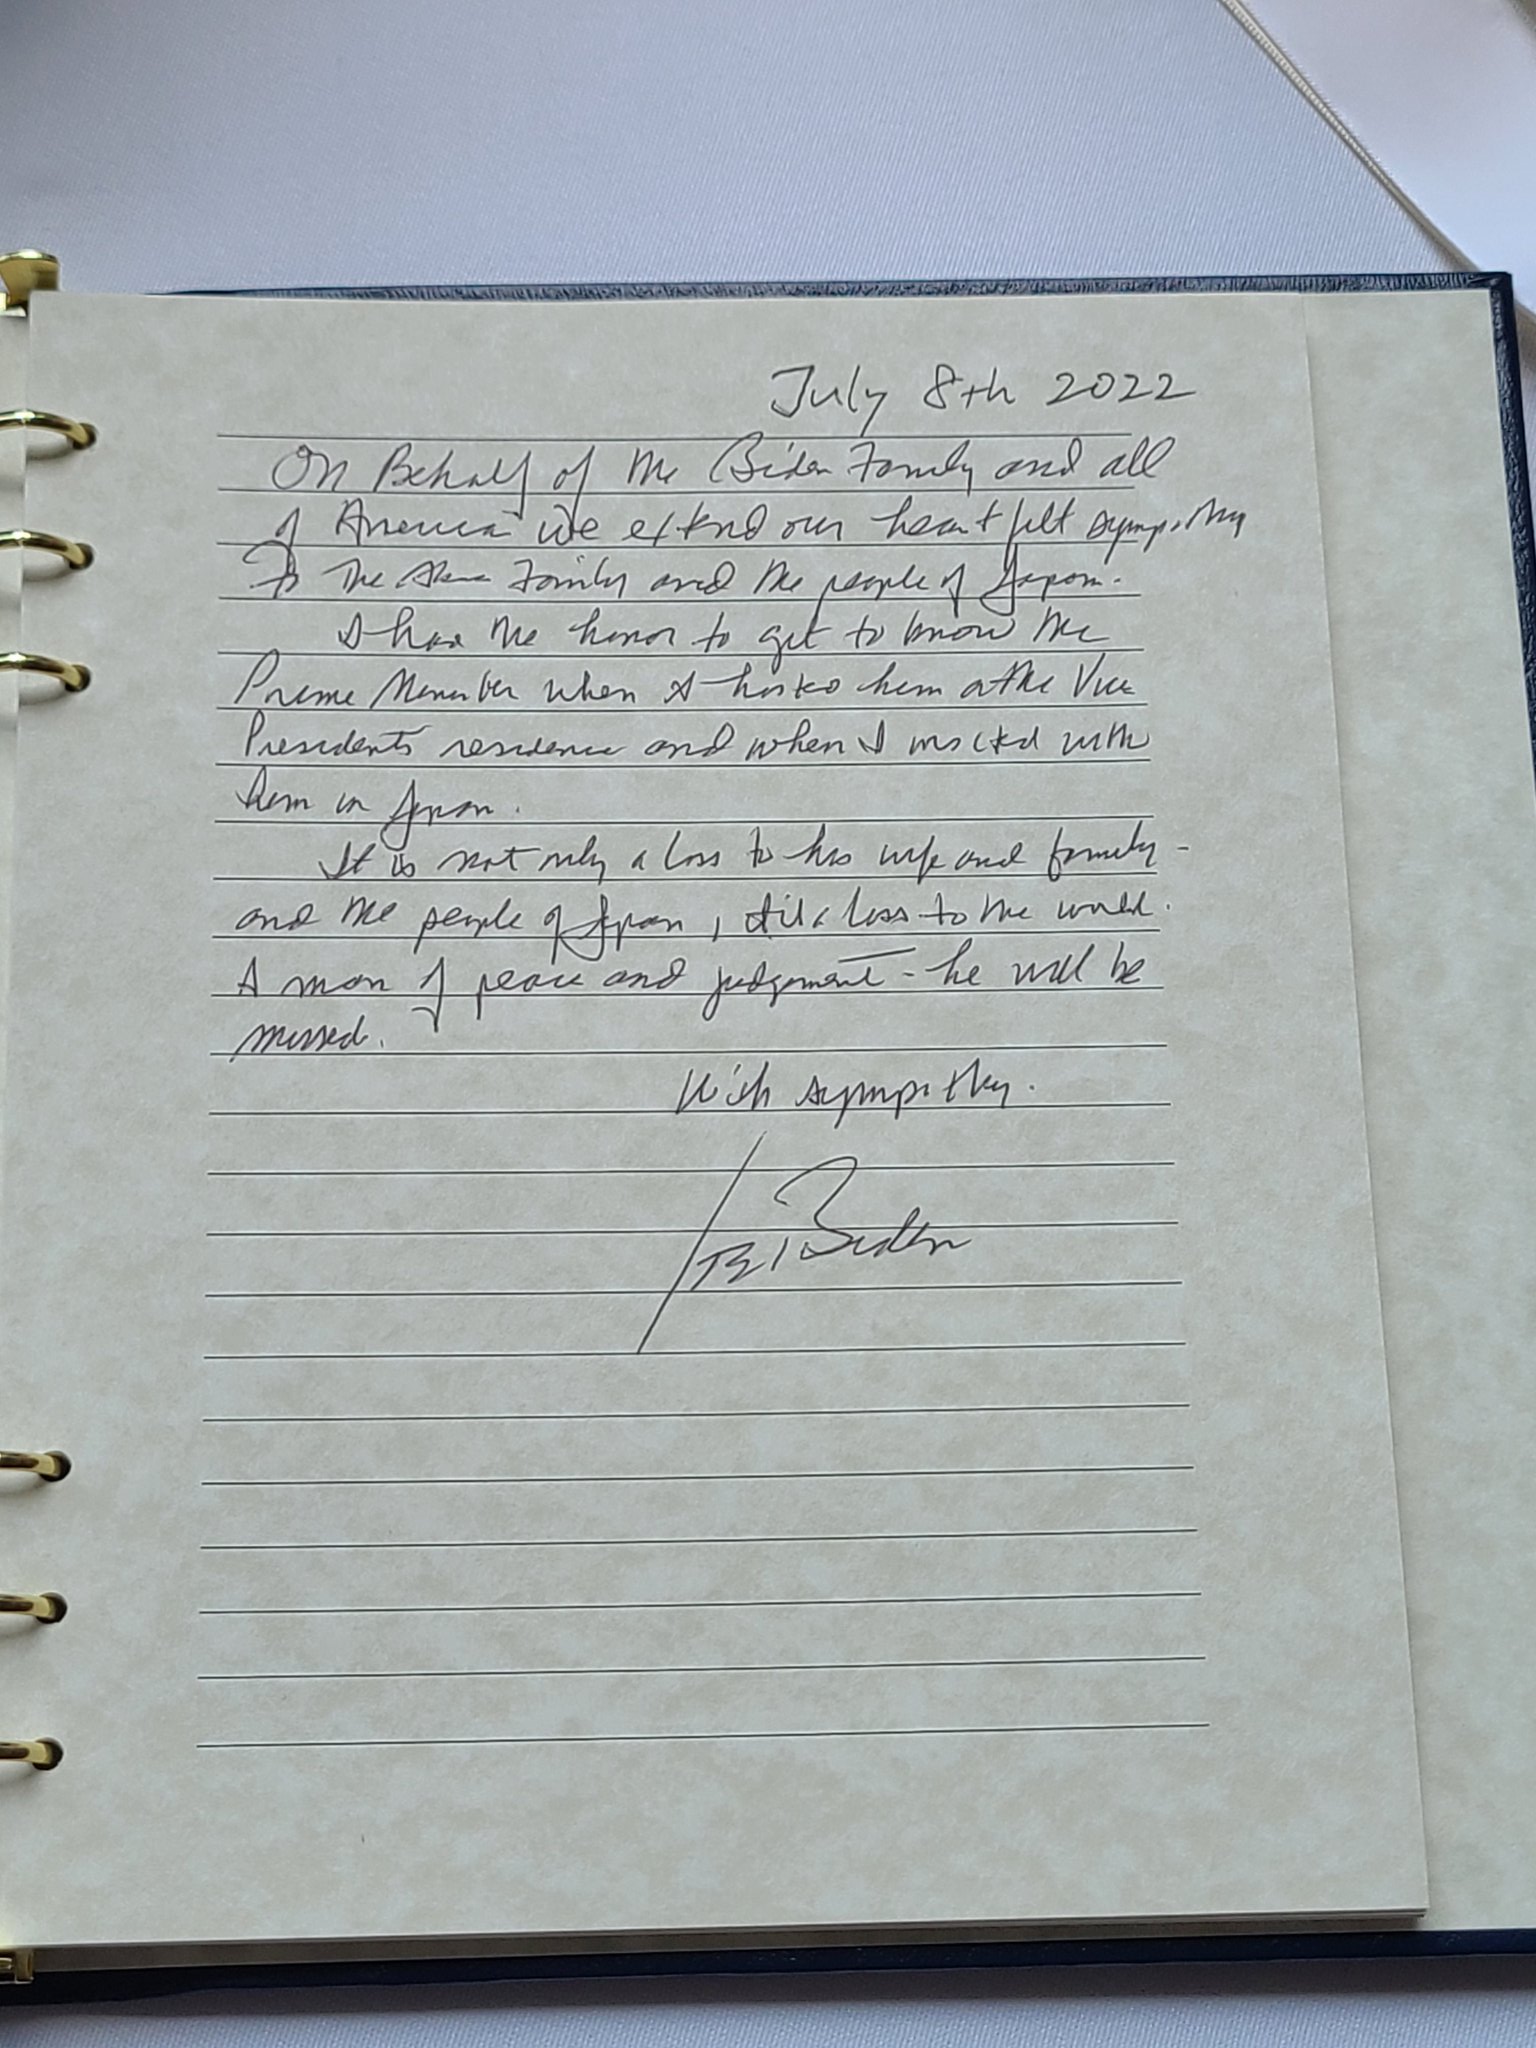 July 8th 2022
On Behalf of the Biden Family and all
of America we extend our heartfelt sympathy
To the Abe Family and the people of Japan.
I had the honor to get to know the
Prime Minister when I hosted him at the Vice
Presidents residence and when I visited with
him in Japan.
It is not only a loss to his wife and family -
and the people of Japan, a loss to the world.
A man of peace and judgement - he will be
missed.
With sympathy.
Joe Biden